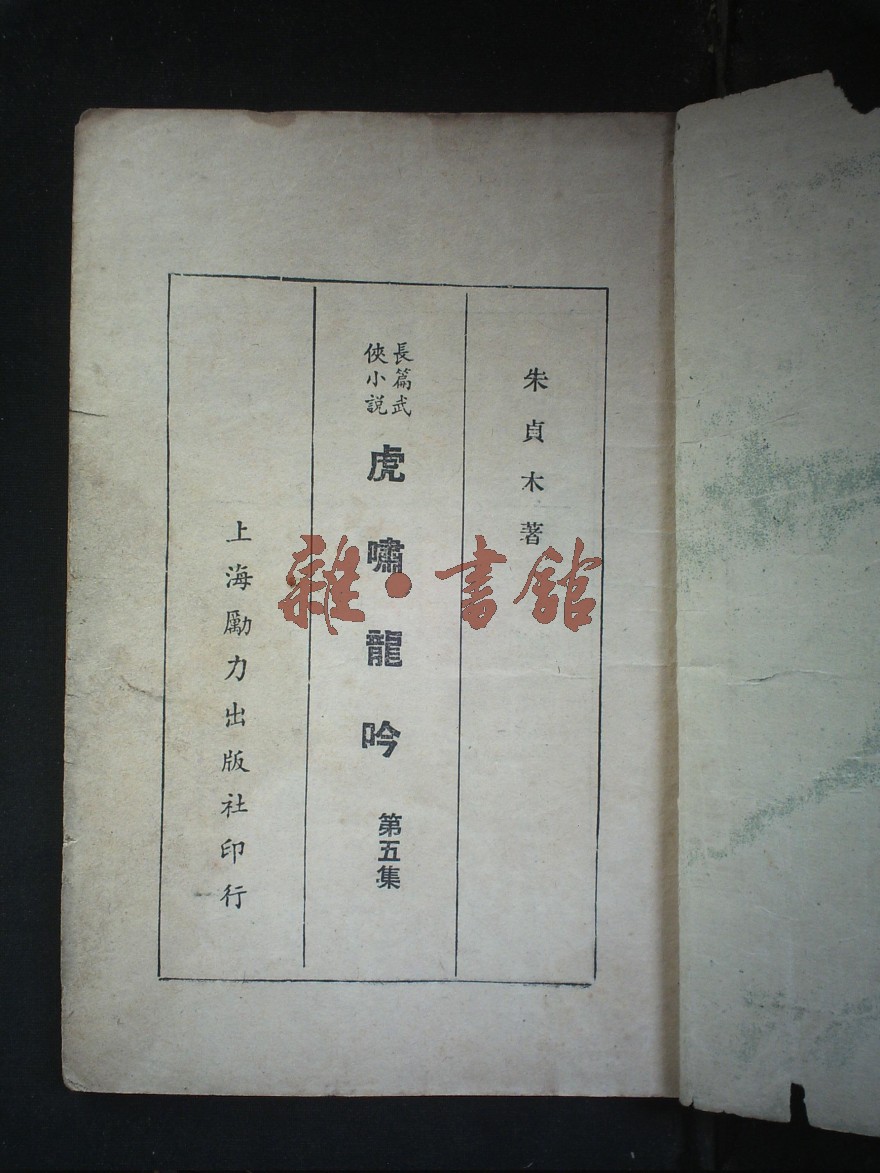 朱貞木著
長篇武
俠小說
虎嘯龍吟
第五集
上海勵力出版社印行
雜·書館